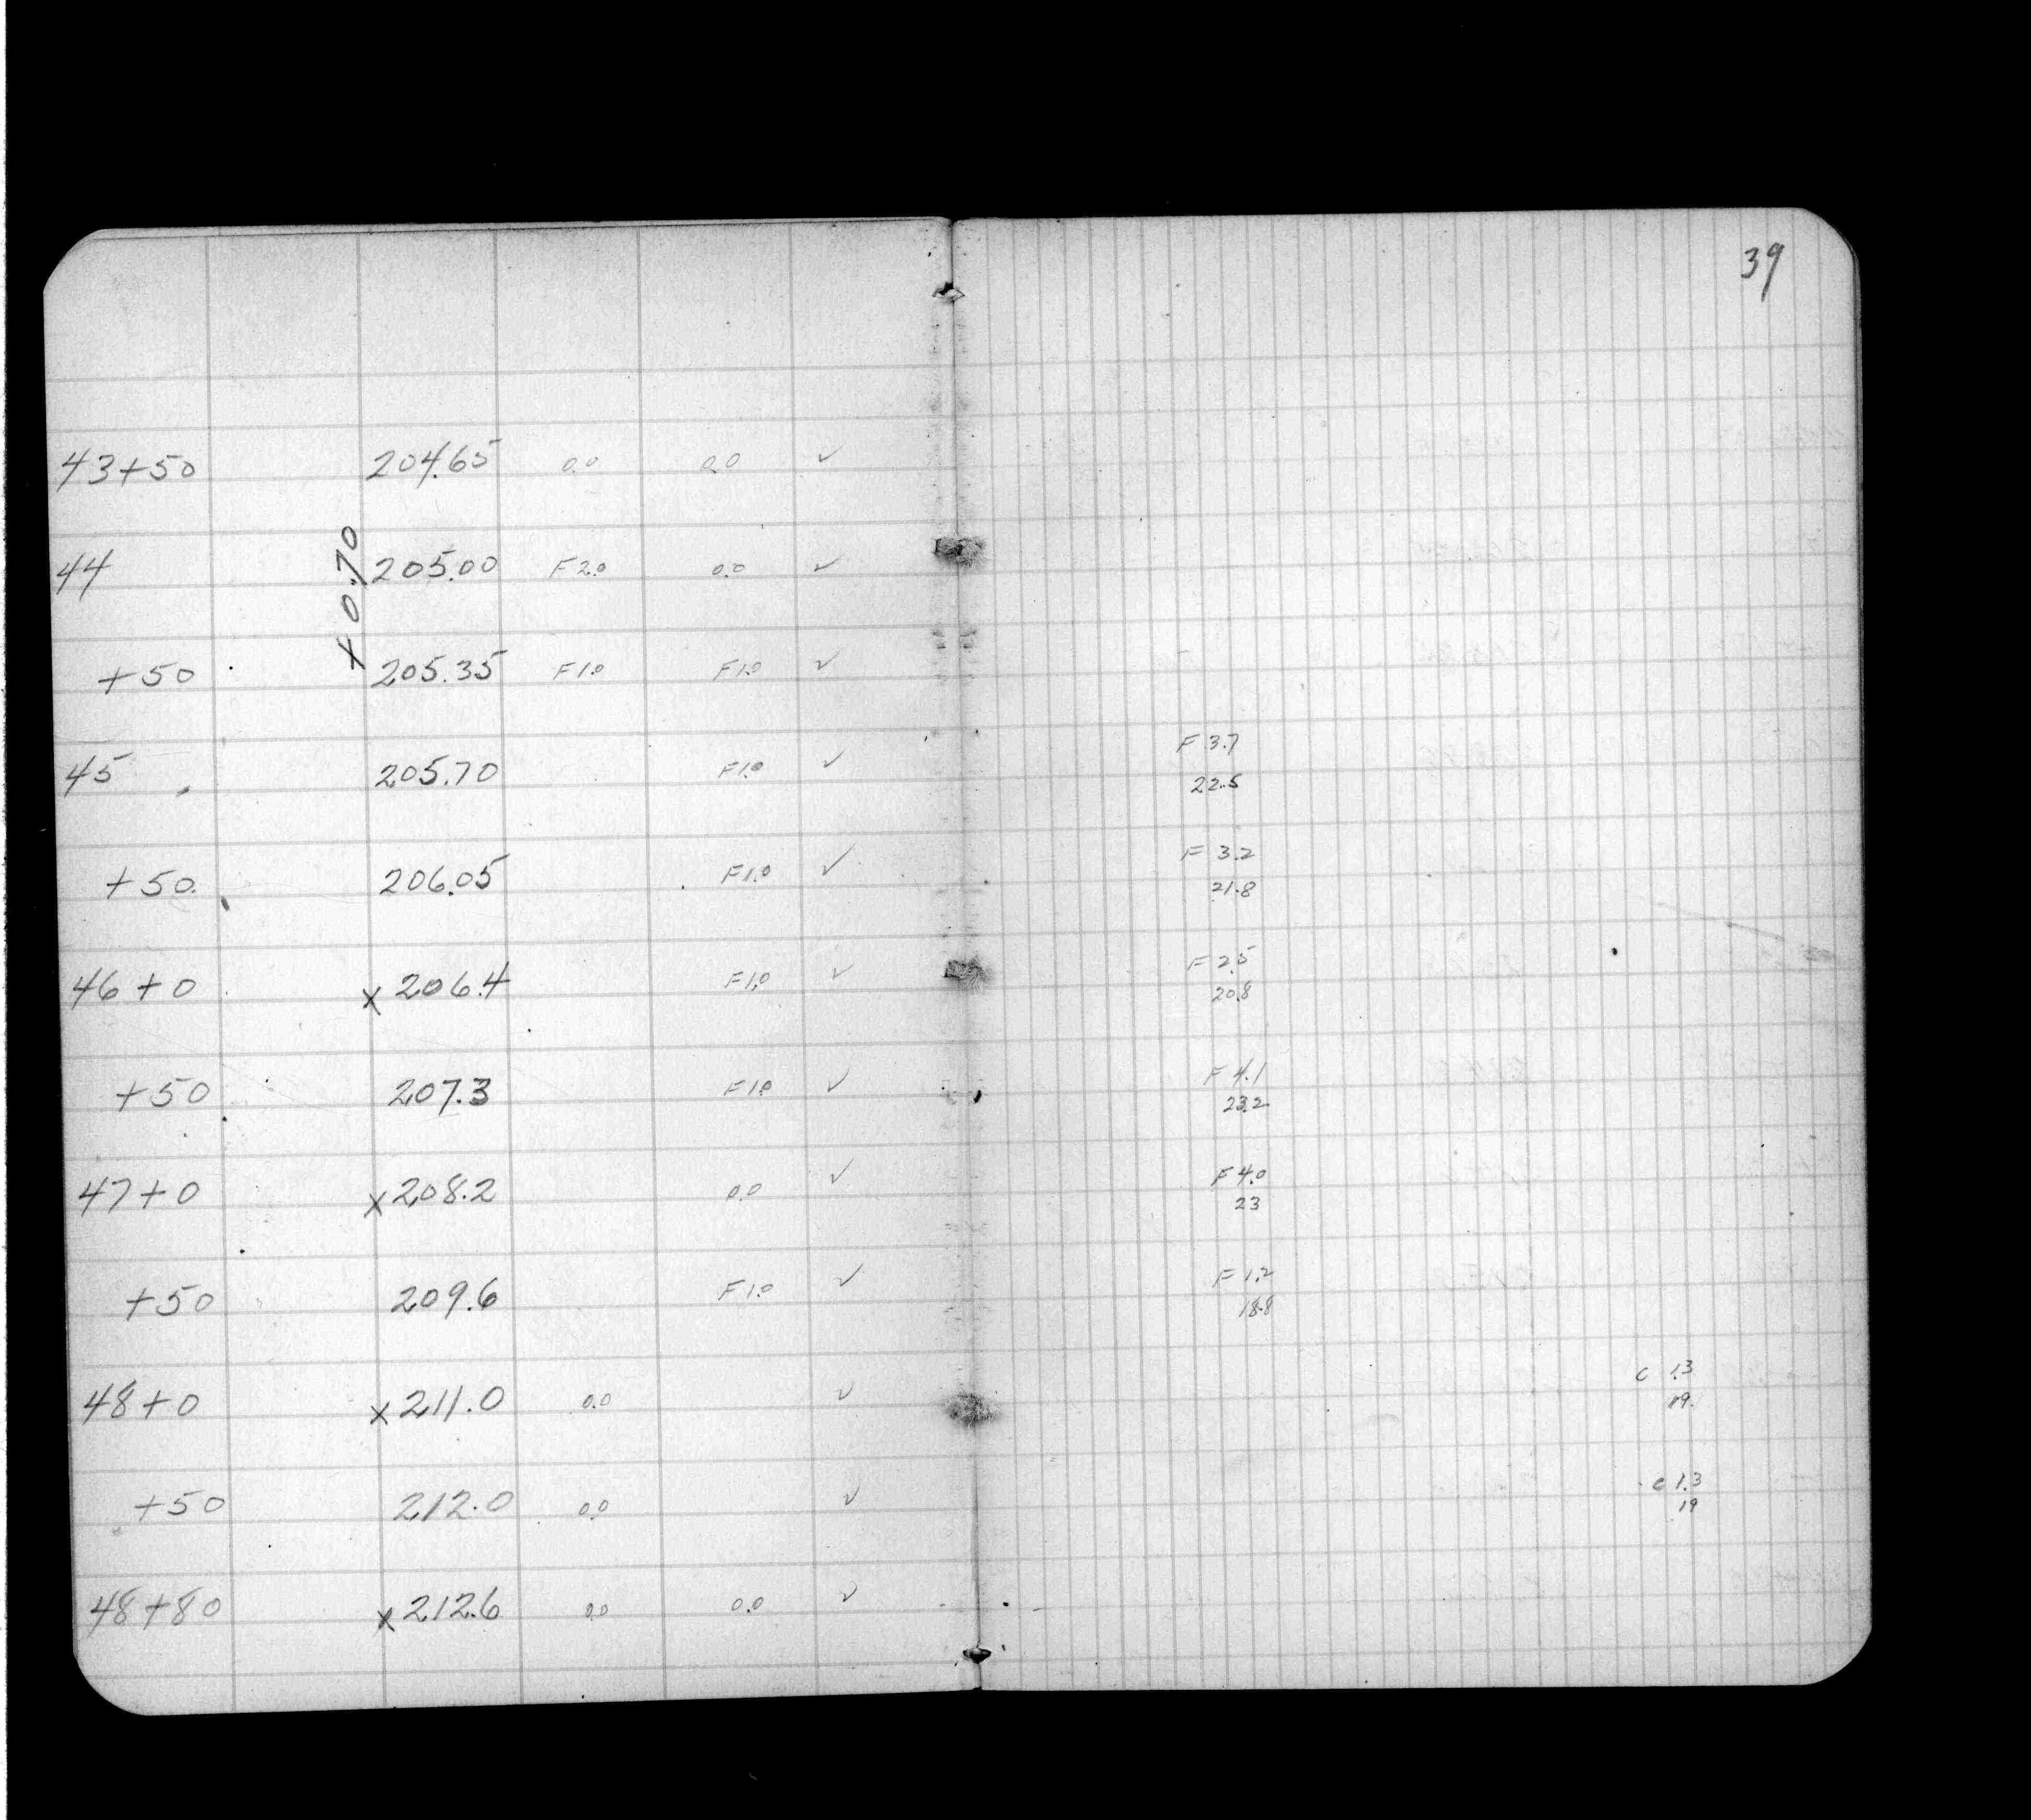 39
43+50 204.65 0.0 0.0 ✓
+0.70
44 205.00 F2.0 0.0 ✓
+50 205.35 F1.0 F1.0 ✓
45 205.70 F1.0 ✓ F 3.7
22.5
+50 206.05 F1.0 ✓ F 3.2
21.8
46+0 x 206.4 F1.0 ✓ F 2.5
20.8
+50 207.3 F1.0 ✓ F 4.1
23.2
47+0 x 208.2 0.0 ✓ F 4.0
23
+50 209.6 F1.0 ✓ F 1.2
18.8
48+0 x 211.0 0.0 ✓ C 1.3
19
+50 212.0 0.0 ✓ C 1.3
19
48+80 x 212.6 0.0 0.0 ✓